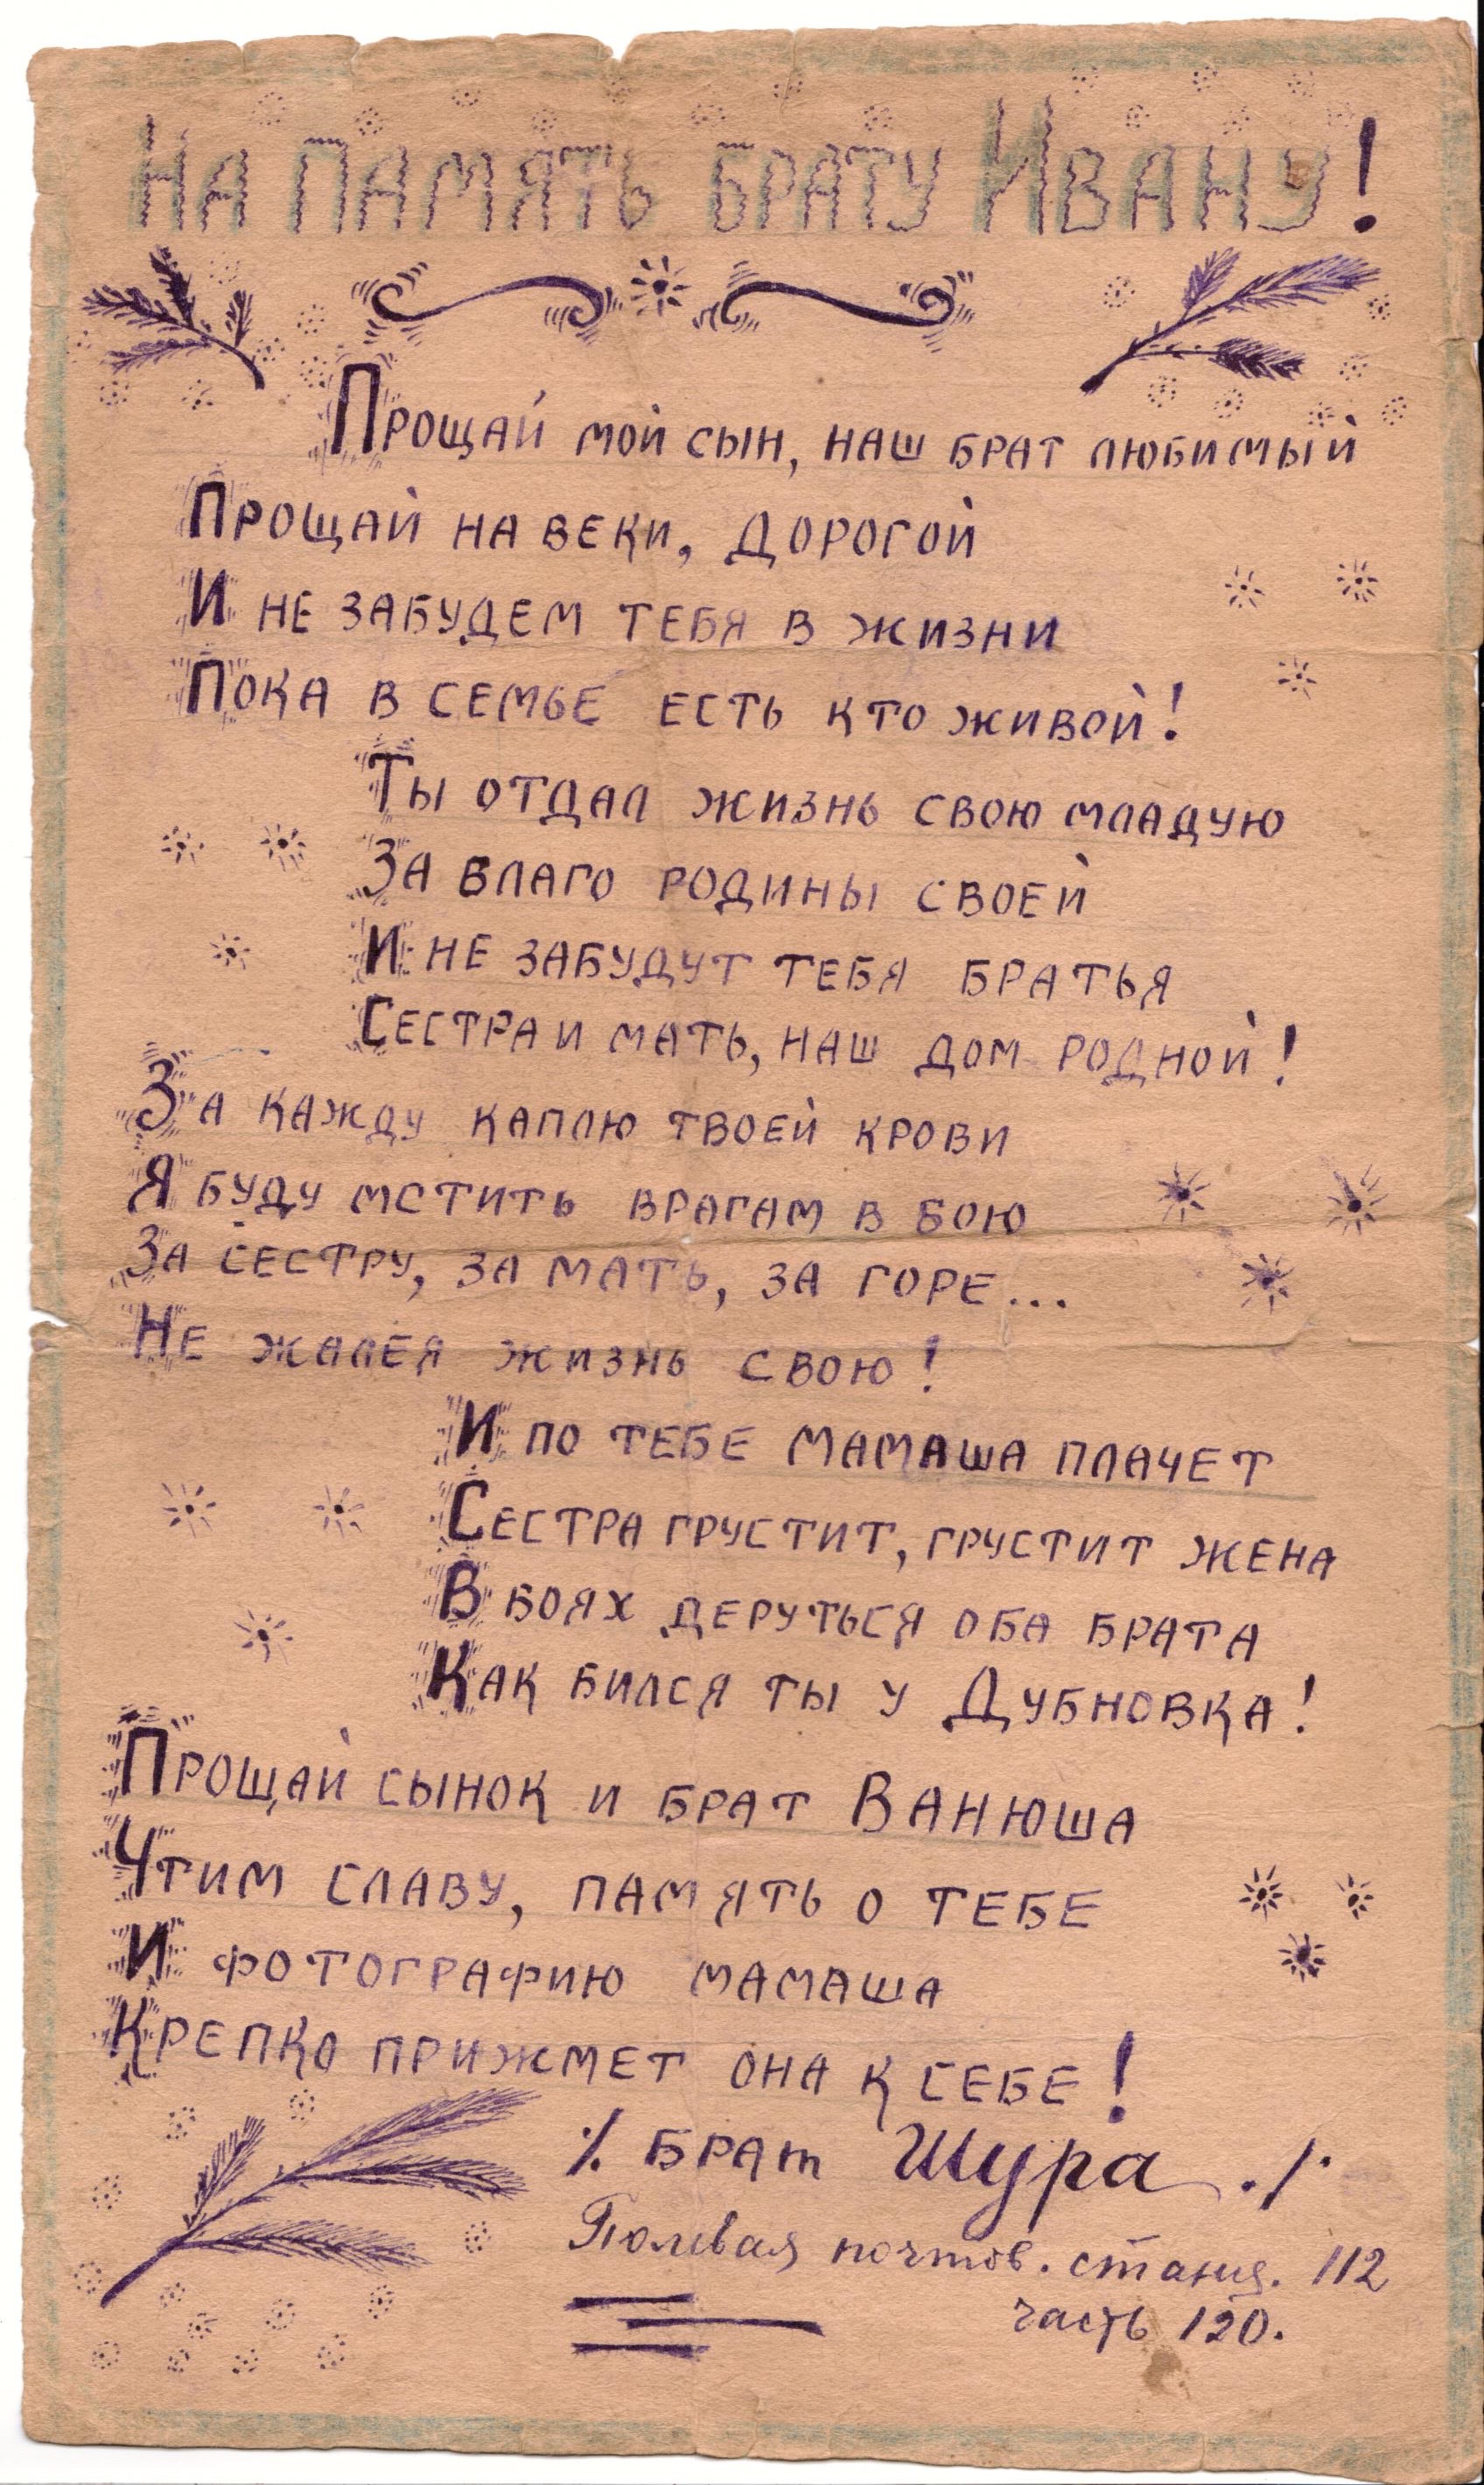 На память брату Ивану!
Прощай мой сын, наш брат любимый
Прощай на веки, дорогой
И не забудем тебя в жизни
Пока в семье есть кто живой!
Ты отдал жизнь свою младую
За благо родины своей
И не забудут тебя братья
Сестра и мать, наш дом родной!
За кажду каплю твоей крови
Я буду мстить врагам в бою
За сестру, за мать, за горе...
Не жалея жизнь свою!
И по тебе мамаша плачет
Сестра грустит, грустит жена
В боях деруться оба брата
Как бился ты у Дубновка!
Прощай сынок и брат Ванюша
Чтим славу, память о тебе
И фотографию мамаша
Крепко прижмет она к себе!
./. брат Шура ./.
Полевая почтов. станц. 112
часть 120.